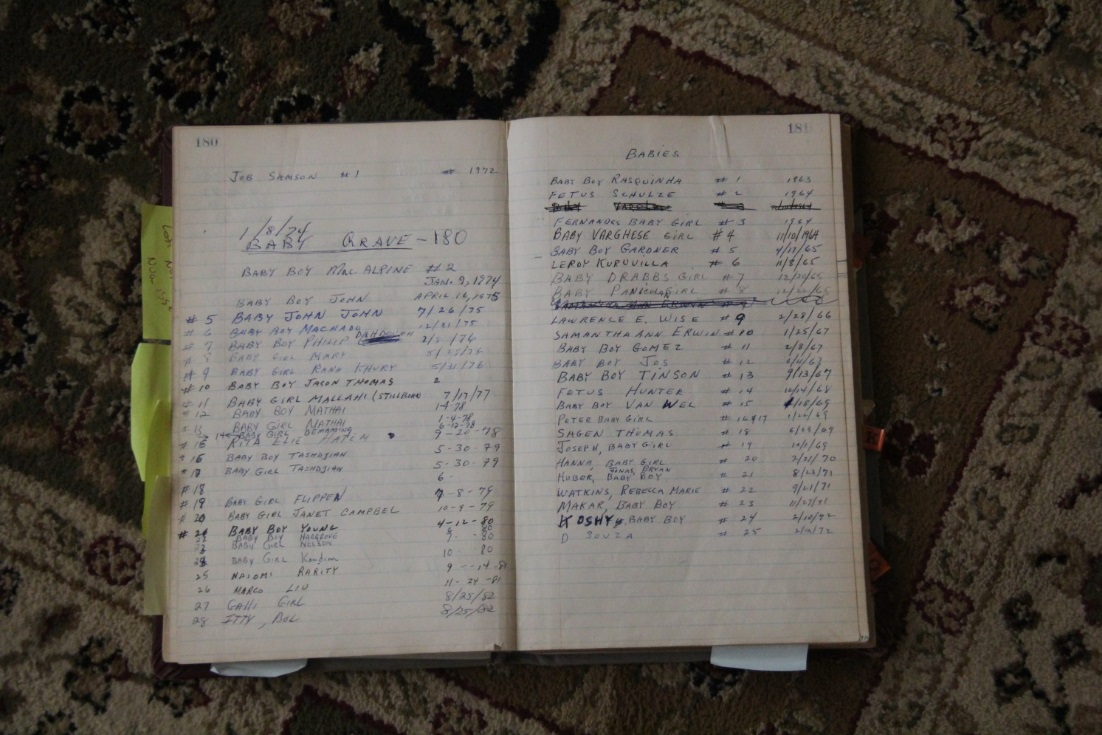 180
JOB SAMSON #1 # 1972
1/8/74
BABY GRAVE - 180
BABY BOY McALPINE #2
JAN. 9, 1974
BABY BOY JOHN APRIL 16, 1975
#5 BABY JOHN JOHN 7/26/75
#6 BABY BOY MACHADO 12/21/75
#7 BABY BOY PHILIP
#8 BABY GIRL MARI
#9 BABY GIRL RANA KHURY 5/21/76
#10 BABY BOY JASON THOMAS 2
#11 BABY GIRL MALLAHI (STILLBORN) 7/17/77
#12 BABY BOY MATHAI 1-4-78
BABY GIRL MATHAI 1-4-78
BABY GIRL
RITA ELIE HATEM 9-20-78
#16 BABY BOY TASHDJIAN 5-30-79
#17 BABY GIRL TASHDJIAN 5-30-79
#18 6-
#19 BABY GIRL FLIPPEN 7-8-79
#20 BABY GIRL JANET CAMPBEL 10-9-79
#21 BABY BOY YOUNG 4-12-80
BABY BOY 80
23 BABY GIRL NELSON 80
24 BABY GIRL 10 80
25 NAIOMI RARITY 9 -14-81
26 MARGO LIU 11-24-81
27 GALLI GIRL 8/25/82
28 ITTY, 8/25/82
181
BABIES
BABY BOY RASQUINHA #1 1963
FETUS SCHULZE #2 1964
FERNANDES BABY GIRL #3 1964
BABY VARGHESE GIRL #4 11/10/1964
BABY BOY GARDNER #5 4/17/65
LEROY KURUVILLA #6 11/8/65
BABY DRABBS GIRL #7
BABY GIRL #8
LAWRENCE E. WISE #9 2/28/66
SAMANTHA ANN ERWIN #10 1/25/67
BABY BOY GOMEZ #11 2/8/67
BABY BOY JOS #12
BABY BOY TINSON #13 9/13/67
FETUS HUNTER #14 10/14/68
BABY BOY VAN WEL #15
PETER BABY GIRL #16&17
SAGEN THOMAS #18
JOSEPH, BABY GIRL #19
HANNA, BABY GIRL #20 2/21/70
HUBOR, BABY BOY #21 8/23/71
WATKINS, REBECCA MARIE #22 9/21/71
MAKAR, BABY BOY #23 11/27/71
KOSHY, BABY BOY #24 2/10/72
D SOUZA #25